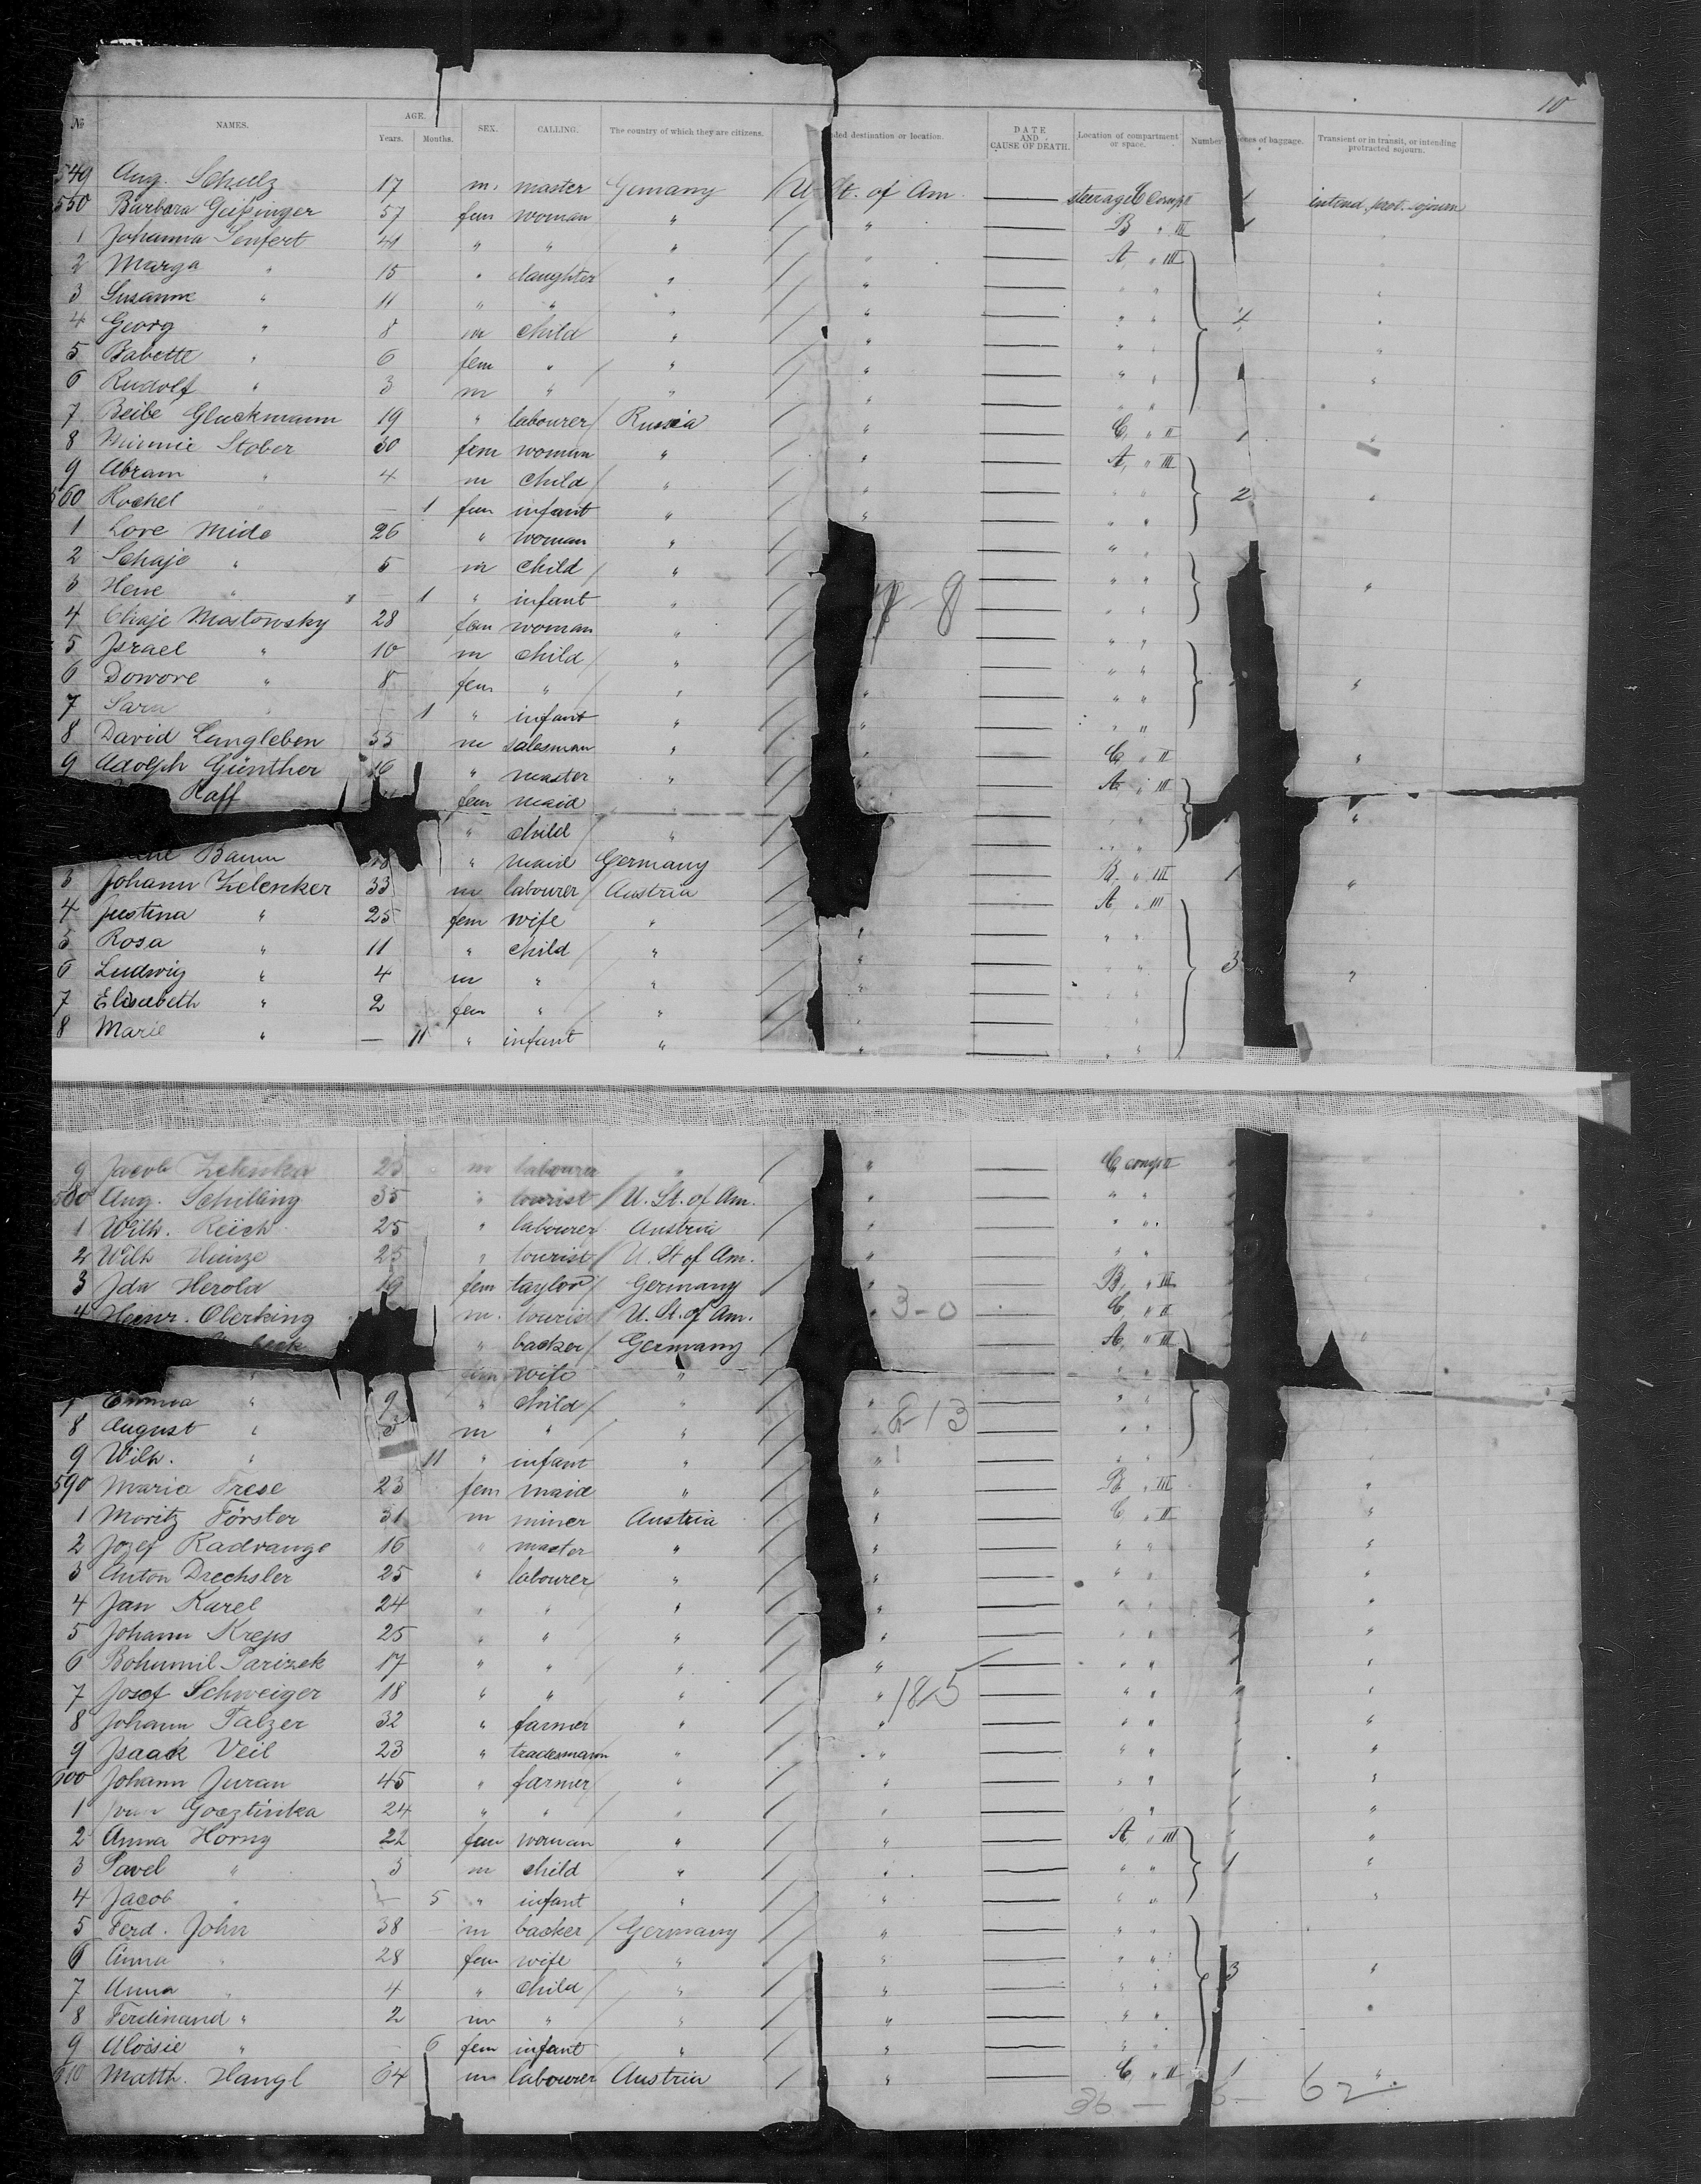 10
№ NAMES. AGE. Years. Months. SEX. CALLING. The country of which they are citizens. ded destination or location. DATE AND CAUSE OF DEATH. Location of compartment or space. Number pieces of baggage. Transient or in transit, or intending protracted sojourn.
549 Aug. Schulz 17 m. master Germany U St. of Am. — steerage C Compt 1 intend. prot. sojourn
550 Barbara Geißinger 57 fem woman " " — B " III 1
1 Johanna Senfert 41 " " " " — A " III
2 Marga " 15 " daughter " " — " "
3 Susanne " 11 " " " " — " " 4
4 Georg " 8 m child " " — " "
5 Babette " 6 fem " " " — " "
6 Rudolf " 3 m " " " — " "
7 Beibe Gluckmann 19 " labourer Russia " — C " II 1 "
8 Minnie Stober 30 fem woman " " — A " III
9 Abram " 4 m child " " — " " 2 "
560 Rochel " — 1 fem infant " " — " "
1 Lore Mide 26 " woman " — " "
2 Schaje " 5 m child " — " " "
3 Hene " — 1 " infant " 8 — " "
4 Chaje Mastowsky 28 fem woman " — " "
5 Israel " 10 m child " — " "
6 Dowore " 8 fem " " " — " " "
7 Sara " 1 " infant " " — " "
8 David Langleben 35 m salesman " " — C " II "
9 Adolph Günther 16 " master " — A " III
Raff fem maid " — " " "
" child " — " "
Baum 18 " maid Germany — B " III 1
3 Johann Zelenker 33 m labourer Austria — A " III "
4 Justina " 25 fem wife " " — " "
5 Rosa " 11 " child " " — " " 3
6 Ludwig " 4 m " " " — " " "
7 Elisabeth " 2 fem " " " — " "
8 Marie " — 11 " infant " " — " "
9 Jacob Zelenka 25 m labourer " " — C compt
580 Aug. Schilling 35 " tourist U. St. of Am. " — " "
1 Wilh. Reich 25 " labourer Austria " — " "
2 Wilh Heinze 25 " tourist U. St of Am. " — " "
3 Ida Herold 19 fem taylor Germany " — B " III
4 Heinr. Olerking m. tourist U. St. of Am. " 3-0 — C " II
" backer Germany — A " III "
" fem wife " — " "
7 Emma " 9 " child " " — " "
8 August " 5 m " " " 13 — " "
9 Wilh. " 11 " infant " " — " "
590 Maria Frese 23 fem maid " " — B " III "
1 Moritz Förster 31 m miner Austria " — C " II "
2 Jozef Radvange 16 " master " " — " " "
3 Anton Drechsler 25 " labourer " " — " " "
4 Jan Karel 24 " " " " — " " "
5 Johann Kreps 25 " " " " — " " "
6 Bohumil Parizek 17 " " " " — " " "
7 Josef Schweiger 18 " " " " 185 — " " "
8 Johann Palzer 32 " farmer " " — " " "
9 Isaak Veil 23 " tradesmann " " — " " "
600 Johann Juran 45 " farmer " " — " " "
1 Goeztinka 24 " " " " — " "
2 Anna Horny 22 fem woman " " — A " III "
3 Pavel " 3 m child " " — " " 1 "
4 Jacob " — 5 " infant " " — " " "
5 Ferd. John 38 m backer Germany " — " "
6 Anna " 28 fem wife " " — " " 3 "
7 Anna " 4 " child " " — " "
8 Ferdinand " 2 m " " " — " "
9 Aloisie " — 6 fem infant " " — " "
610 Matth. Hangl 64 m labourer Austria " — C " II 1 "
36 — 62